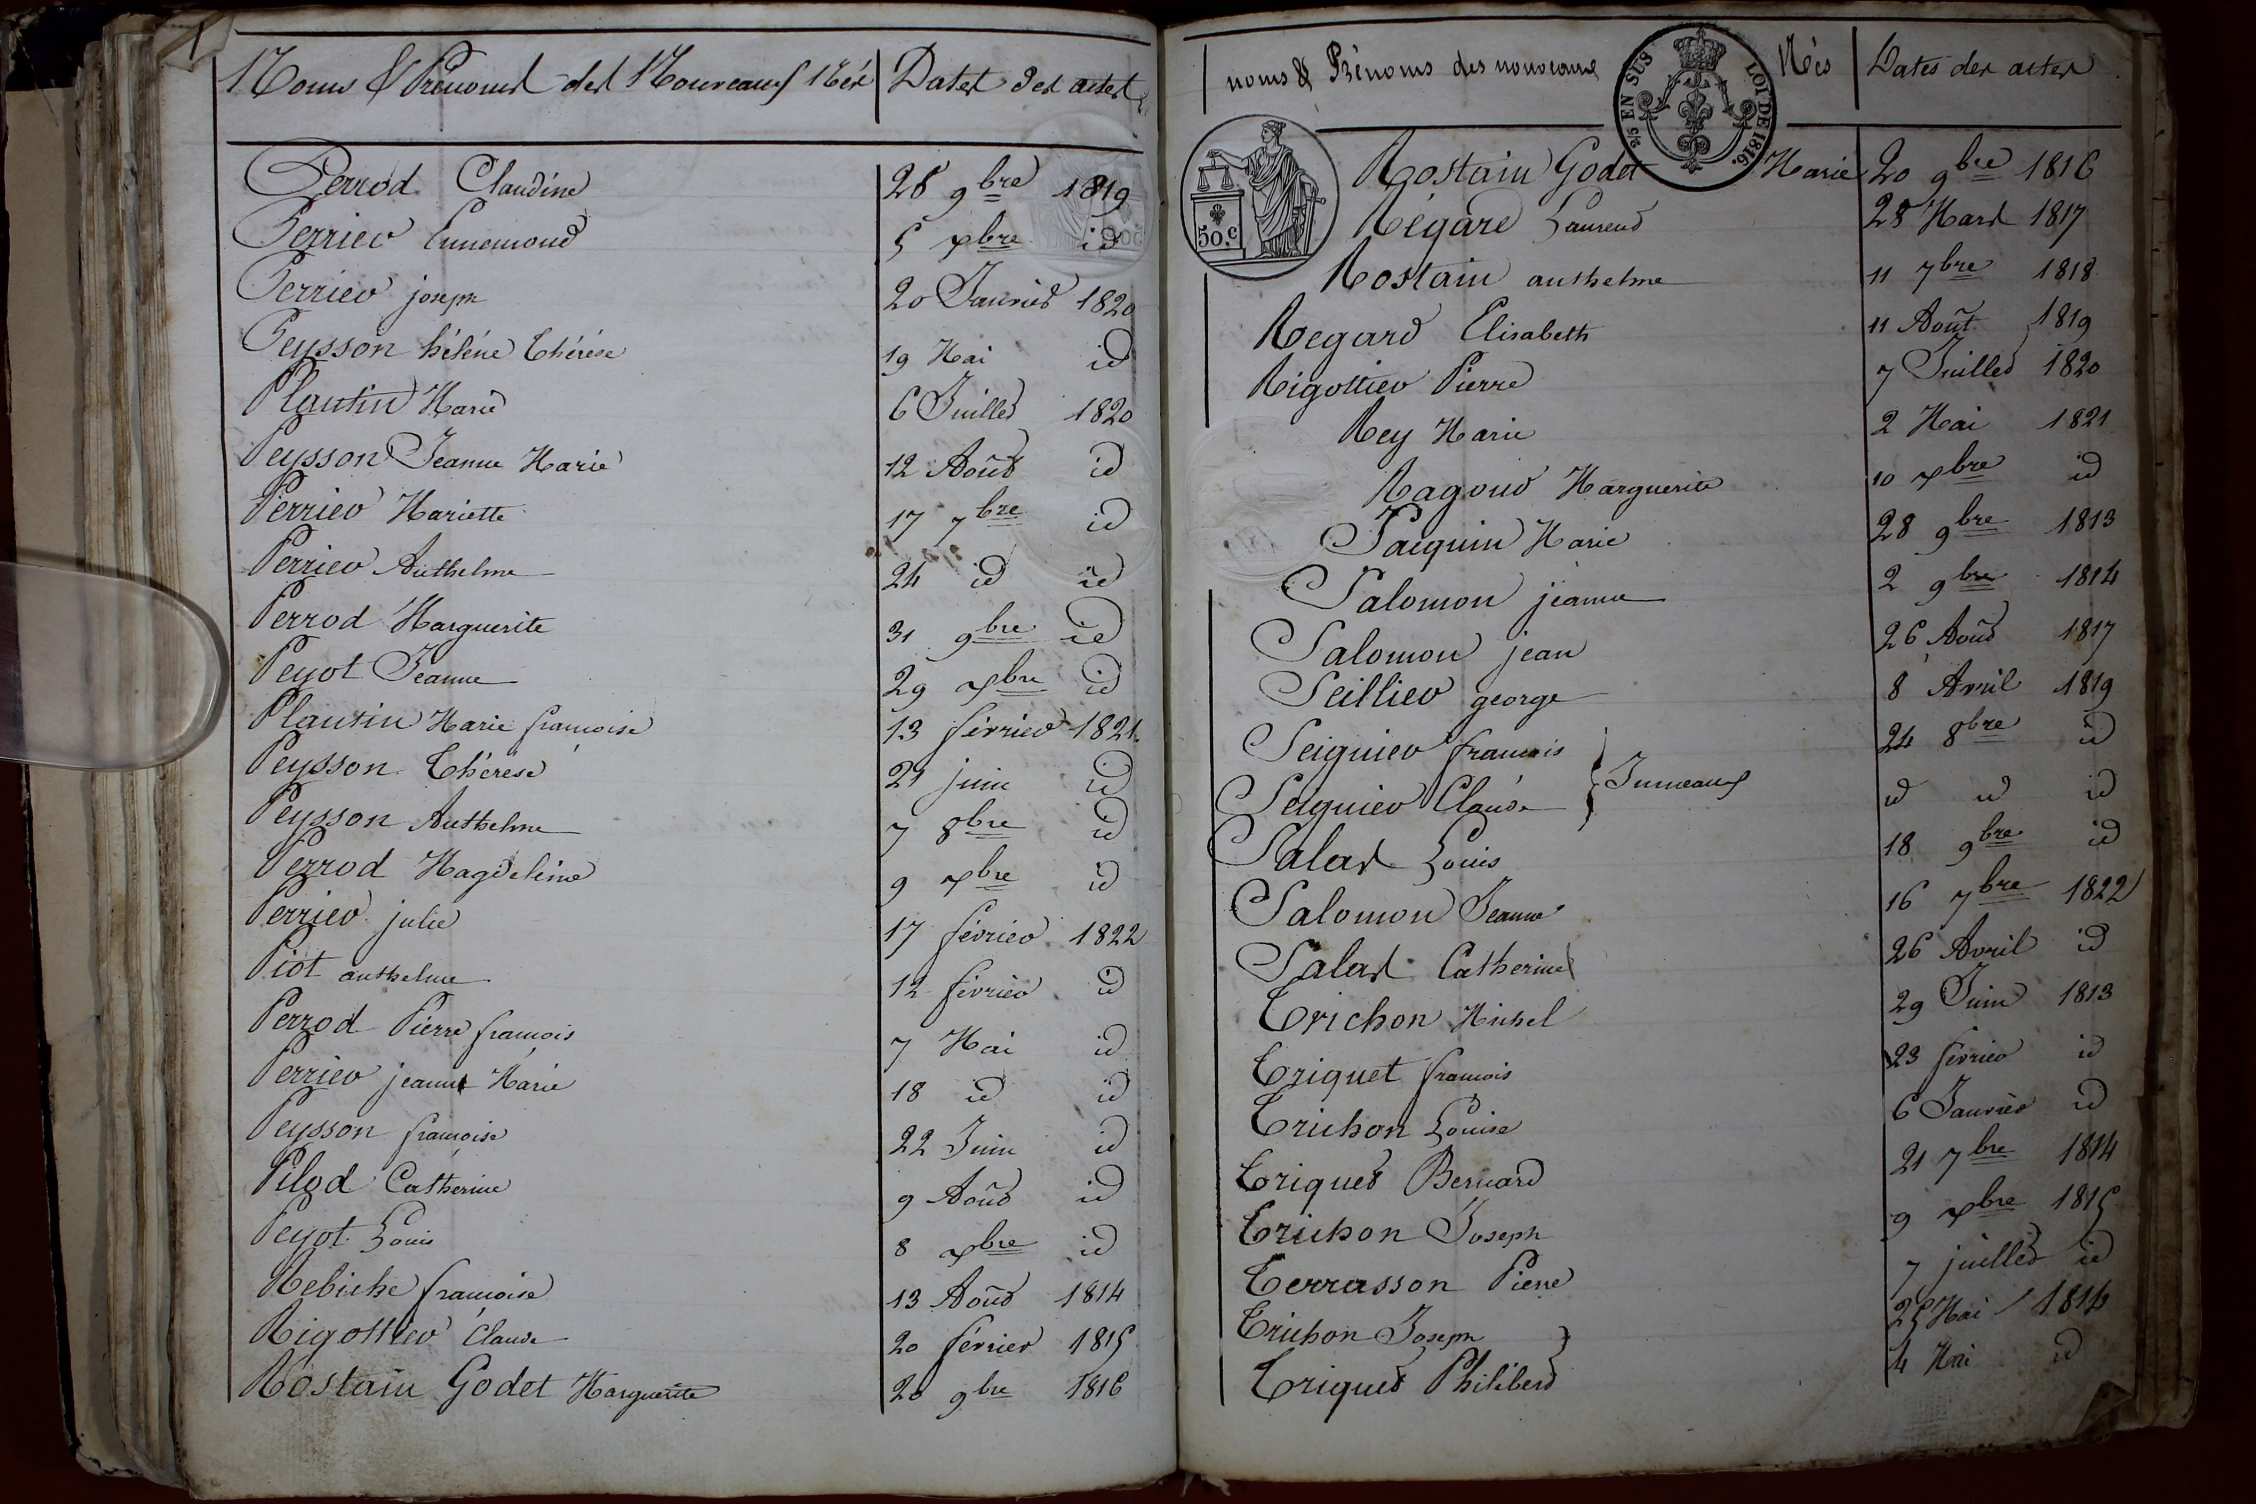 Noms & Prénoms des Nouveaux Nés Dates des actes
Perrod Claudine 28 9bre 1819
Perrier Ennemond 5 xbre id
Perrier joseph 20 Janvier 1820
Peysson héléne Thérèse 19 Mai id
Plantin Marie 6 Juillet 1820
Peysson Jeanne Marie 12 Août id
Perrier Mariette 17 7bre id
Perrier Anthelme 24 id id
Perrod Marguerite 31 9bre id
Peyot Jeanne 29 xbre id
Plantin Marie françoise 13 février 1821
Peysson Thérèse 21 juin id
Peysson Anthelme 7 8bre id
Perrod Magdeleine 9 xbre id
Perrier julie 17 février 1822
Piot anthelme 12 février id
Perrod Pierre françois 7 Mai id
Perrier jeanne Marie 18 id id
Peysson françoise 22 Juin id
Pilod Catherine 9 Août id
Peyot Louis 8 xbre id
Rebiche françoise 13 Août 1814
Rigottier Claude 20 février 1815
Rostain Godet Marguerite 20 9bre 1816
noms & Prénoms des nouveaux Nés Dates des actes
2/5 EN SUS LOI DE 1816.
50.c
Rostain Godet Marie 20 9bre 1816
Régard Laurend 28 Mars 1817
Rostain anthelme 11 7bre 1818
Regard Elisabeth 11 Août 1819
Rigottier Pierre 7 Juillet 1820
Rey Marie 2 Mai 1821
Ragoud Marguerite 10 xbre id
Sacquin Marie 28 9bre 1813
Salomon jeanne 2 9bre 1814
Salomon jean 26 Août 1817
Seillier george 8 Avril 1819
Seignier françois 24 8bre id
Seignier Claude } Jumeaux id id id
Salas Louis 18 9bre id
Salomon Jeanne 16 7bre 1822
Salas Catherine 26 Avril id
Trichon Michel 29 Juin 1813
Triquet françois 23 février id
Trichon Louise 6 Janvier id
Triquet Bernard 21 7bre 1814
Trichon Joseph 9 xbre 1815
Terrasson Pierre 7 juillet id
Trichon Joseph 25 Mai 1816
Triquet Philiberd 4 Mai id